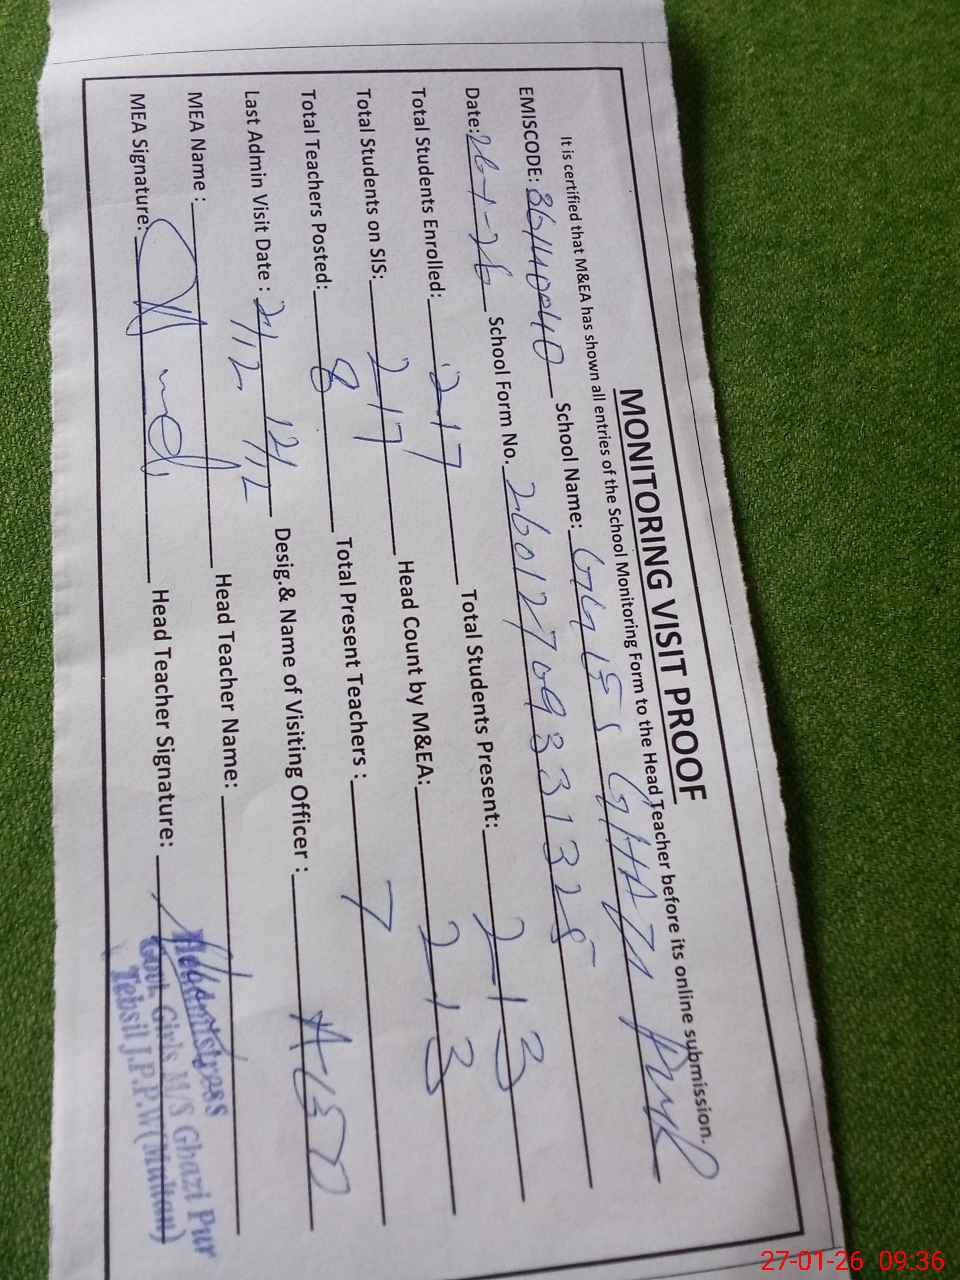 MONITORING VISIT PROOF
It is certified that M&EA has shown all entries of the School Monitoring Form to the Head Teacher before its online submission.
EMISCODE: School Name: GGES GHAZI PUR
Date: 26-1-26 School Form No. 2601270933325
Total Students Enrolled: 217 Total Students Present: 213
Total Students on SIS: 217 Head Count by M&EA: 213
Total Teachers Posted: 8 Total Present Teachers : 7
Last Admin Visit Date : Desig.& Name of Visiting Officer :
MEA Name : Head Teacher Name:
MEA Signature: Head Teacher Signature:
Headmistress
Govt. Girls M/S Ghazi Pur
Tehsil J.P.P.W (Multan)
27-01-26 09:36